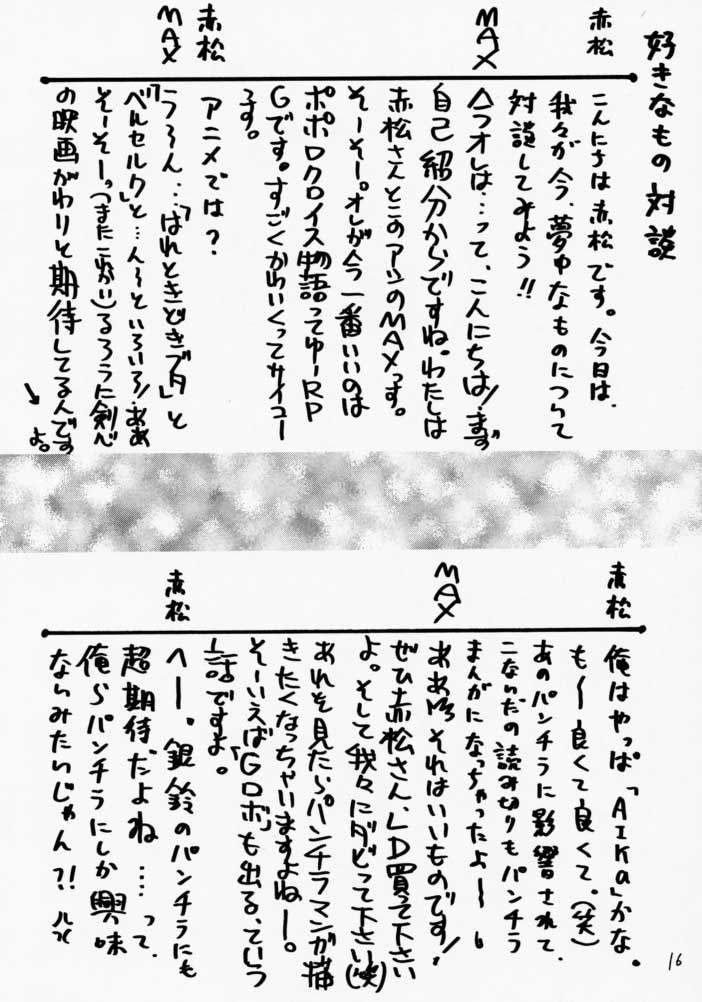 好きなもの対談
赤松
こんにちは赤松です。今日は、
我々が今、夢中なものについて
対談してみよう!!
MAX
へっオレは…って、こんにちは!まず
自己紹分からですね。わたしは
赤松さんとこのアシのMAXっす。
そーそー。オレが今一番いいのは
ポポロクロイス物語ってゆーRP
Gです。すごくかわいくってサイコー
です。
赤松
アニメでは?
MAX
う~ん…「はれときどきブタ」と
「ベルセルク」と…ん~といろいろ!ああ
そーそーっ(またこれかい)るろうに剣心
の映画がわりと期待してるんです
よ。
赤松
俺はやっぱ「AIKa」かな。
も~良くて良くて。(笑)
あのパンチラに影響されて、
こないだの読み切りもパンチラ
まんがになっちゃったよ~
MAX
ああ それはいいものです!
ぜひ赤松さん、LD買って下さい
よ。そして我々にダビって下さい(笑)
あれを見たらパンチラマンガ描
きたくなっちゃいますよねー。
そーいえば「Gロボ」も出る、ていう
話ですよ。
赤松
へー。銀鈴のパンチラにも
超期待だよね……って、
俺らパンチラにしか興味
ないみたいじゃん?!
16